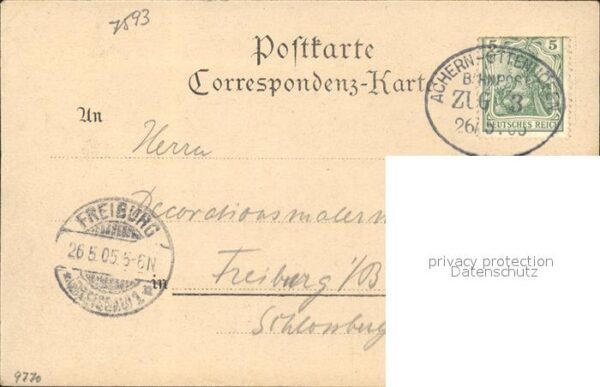 7593
Postkarte
Correspondenz-Karte
5 5
DEUTSCHES REICH
ACHERN-OTTENHÖFEN
BAHNPOST
ZUG 3
26/5.05
An
Herrn
Decorationsmaler
FREIBURG
26.5.05.5-6N
*(BREISGAU)1*
in
Freiburg i/B
Schlossberg
privacy protection
Datenschutz
9770